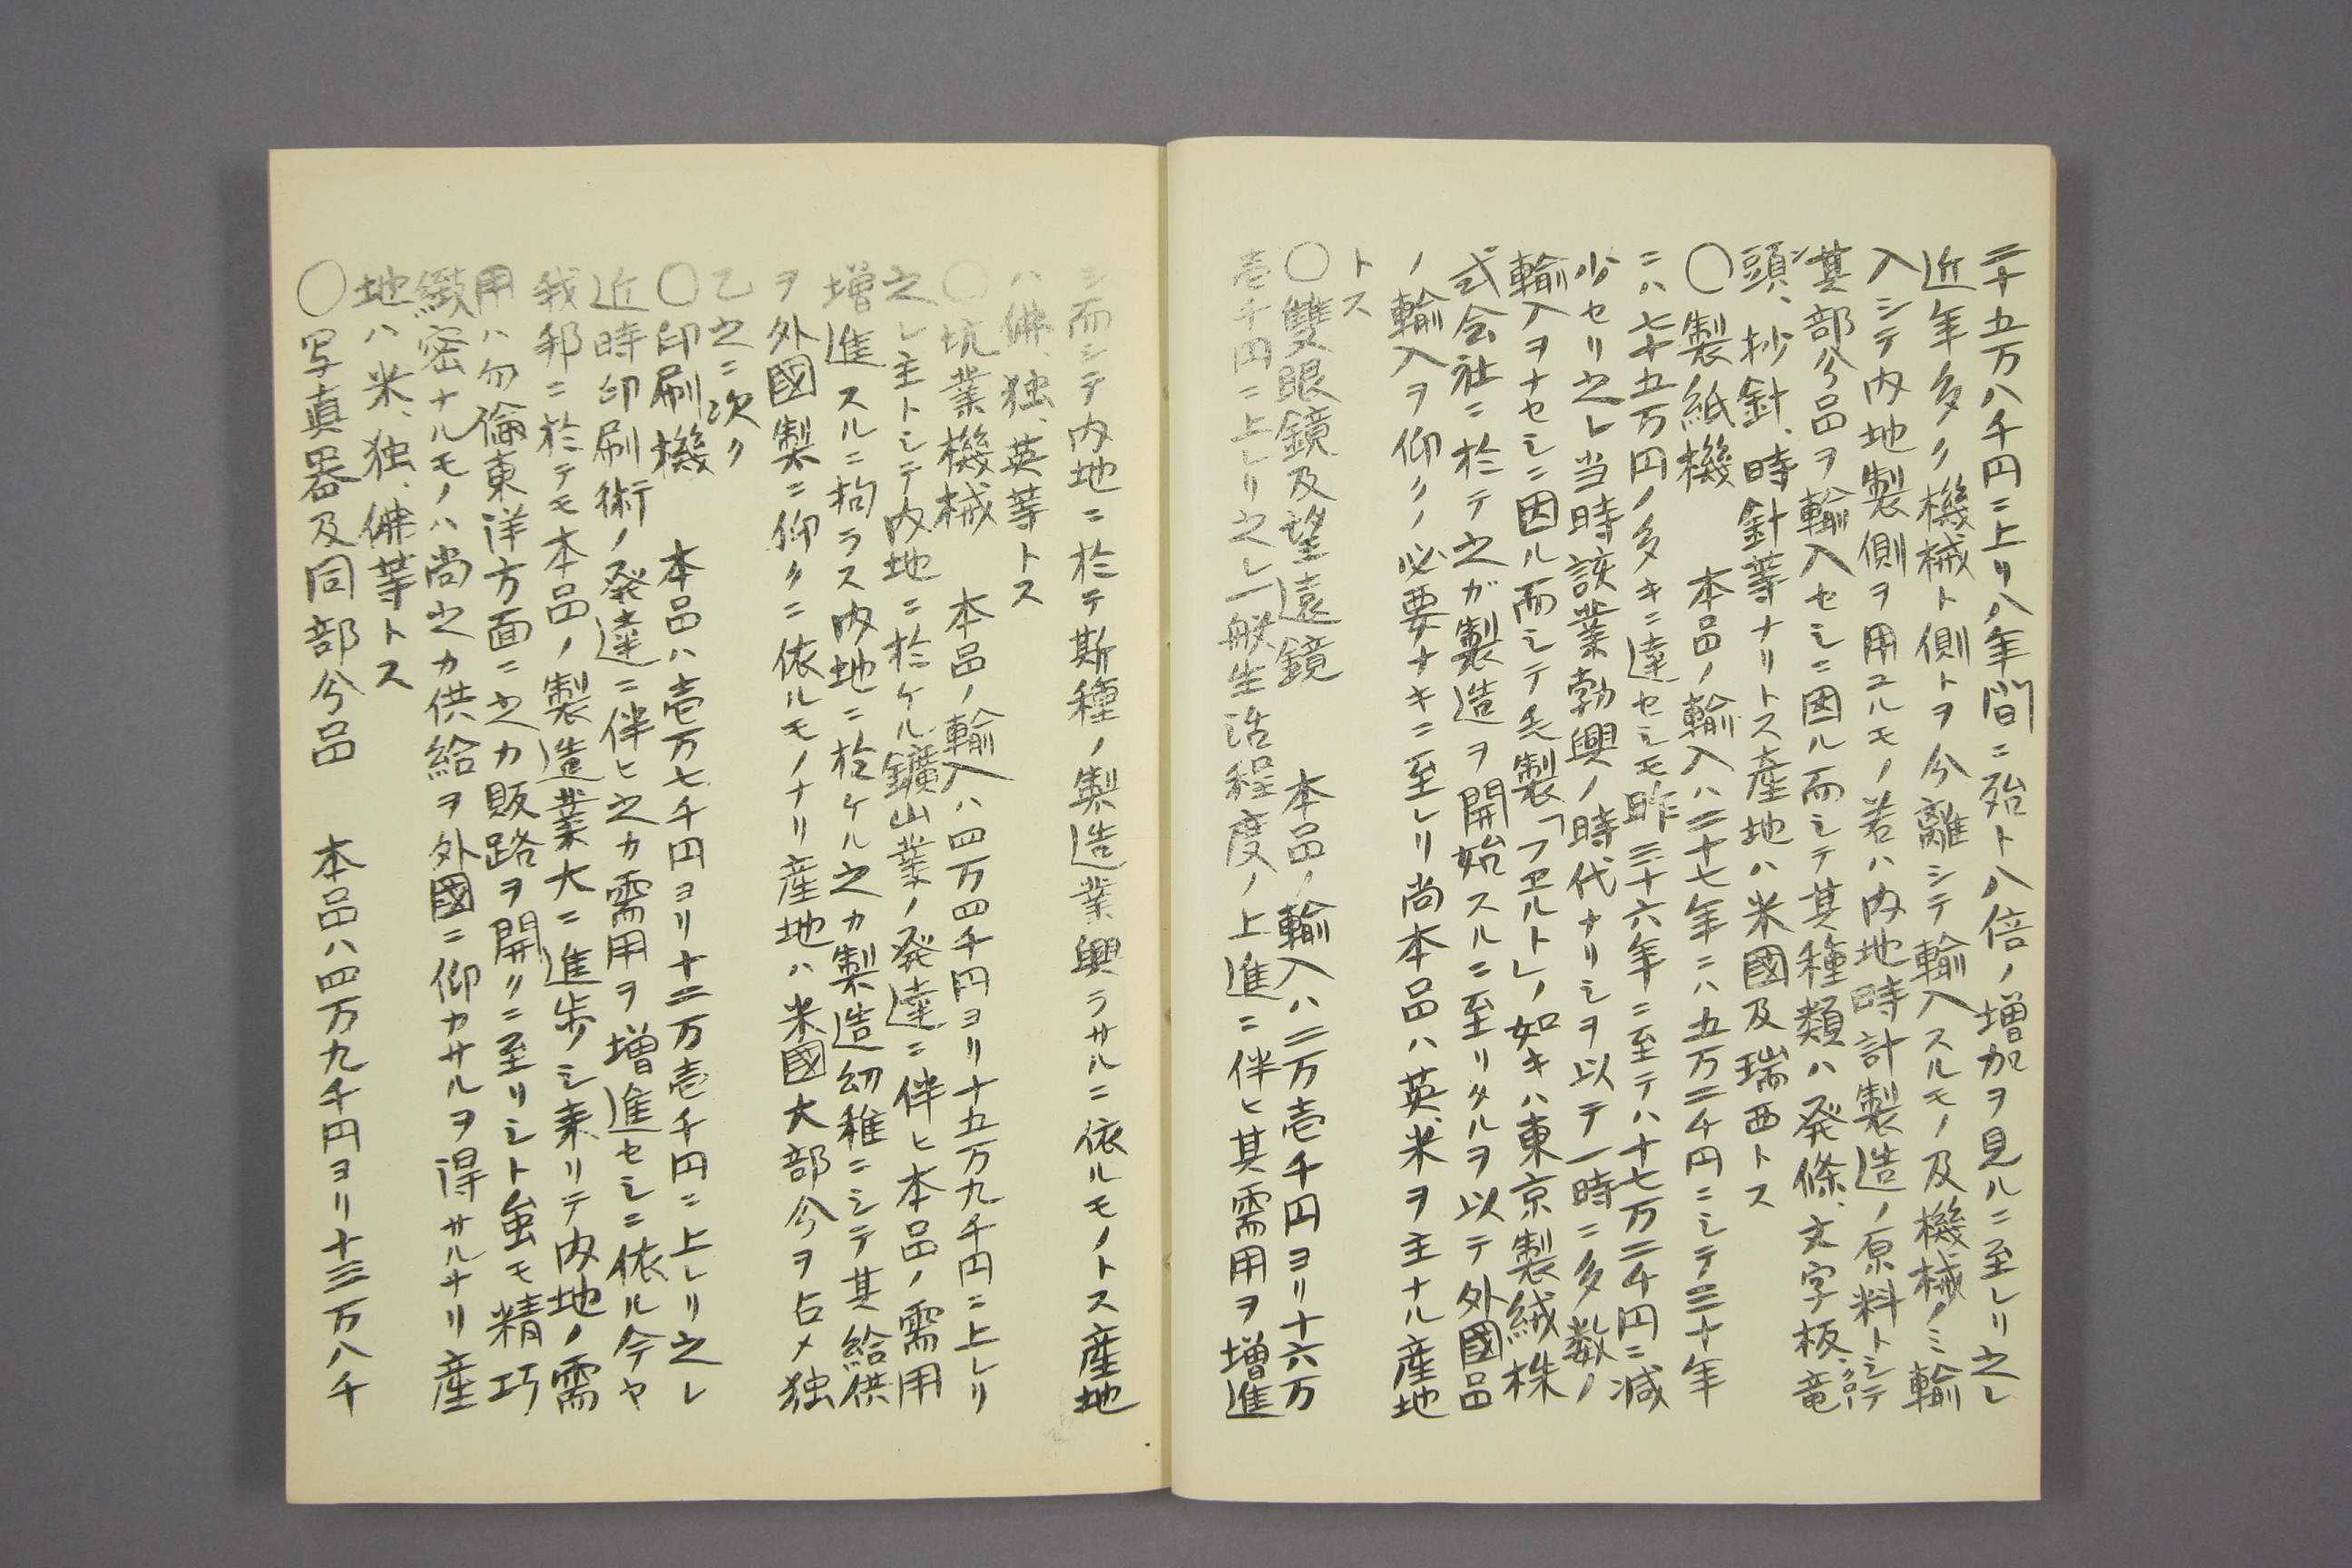 二十五万八千円ニ上リ八年間ニ殆ト八倍ノ増加ヲ見ルニ至レリ之レ
近年多ク機械ト側トヲ分離シテ輸入スルモノ及機械ノミ輸
入シテ内地製側ヲ用ユルモノ若ハ内地時計製造ノ原料トシテ
其部分品ヲ輸入セシニ因ル而シテ其種類ハ発條、文字板、竜
頭、抄針、時針等ナリトス産地ハ米國及瑞西トス
〇製紙機 本品ノ輸入ハ二十七年ニハ五万二千円ニシテ三十年
ニハ七十五万円ノ多キニ達セシモ昨三十六年ニ至テハ十七万二千円ニ減
少セリ之レ当時該業勃興ノ時代ナリシヲ以テ一時ニ多数ノ
輸入ヲナセシニ因ル而シテ毛製「フヱルト」ノ如キハ東京製絨株
式会社ニ於テ之ガ製造ヲ開始スルニ至リタルヲ以テ外國品
ノ輸入ヲ仰クノ必要ナキニ至レリ尚本品ハ英、米ヲ主ナル産地
トス
〇雙眼鏡及望遠鏡 本品ノ輸入ハ二万壱千円ヨリ十六万
壱千円ニ上レリ之レ一般生活程度ノ上進ニ伴ヒ其需用ヲ増進
シ而シテ内地ニ於テ斯種ノ製造業興ラサルニ依ルモノトス産地
ハ佛、独、英等トス
〇坑業機械 本品ノ輸入ハ四万四千円ヨリ十五万九千円ニ上レリ
之レ主トシテ内地ニ於ケル鑛山業ノ発達ニ伴ヒ本品ノ需用
増進スルニ拘ラス内地ニ於ケル之カ製造幼稚ニシテ其給供
ヲ外國製ニ仰クニ依ルモノナリ産地ハ米國大部分ヲ占メ独
乙之ニ次ク
〇印刷機 本品ハ壱万七千円ヨリ十二万壱千円ニ上レリ之レ
近時印刷術ノ発達ニ伴ヒ之カ需用ヲ増進セシニ依ル今ヤ
我邦ニ於テモ本品ノ製造業大ニ進歩シ来リテ内地ノ需
用ハ勿倫東洋方面ニ之カ販路ヲ開クニ至リシト虽モ精巧
緻密ナルモノハ尚之カ供給ヲ外國ニ仰カサルヲ得サルナリ産
地ハ米、独、佛等トス
〇写真器及同部分品 本品ハ四万九千円ヨリ十三万八千